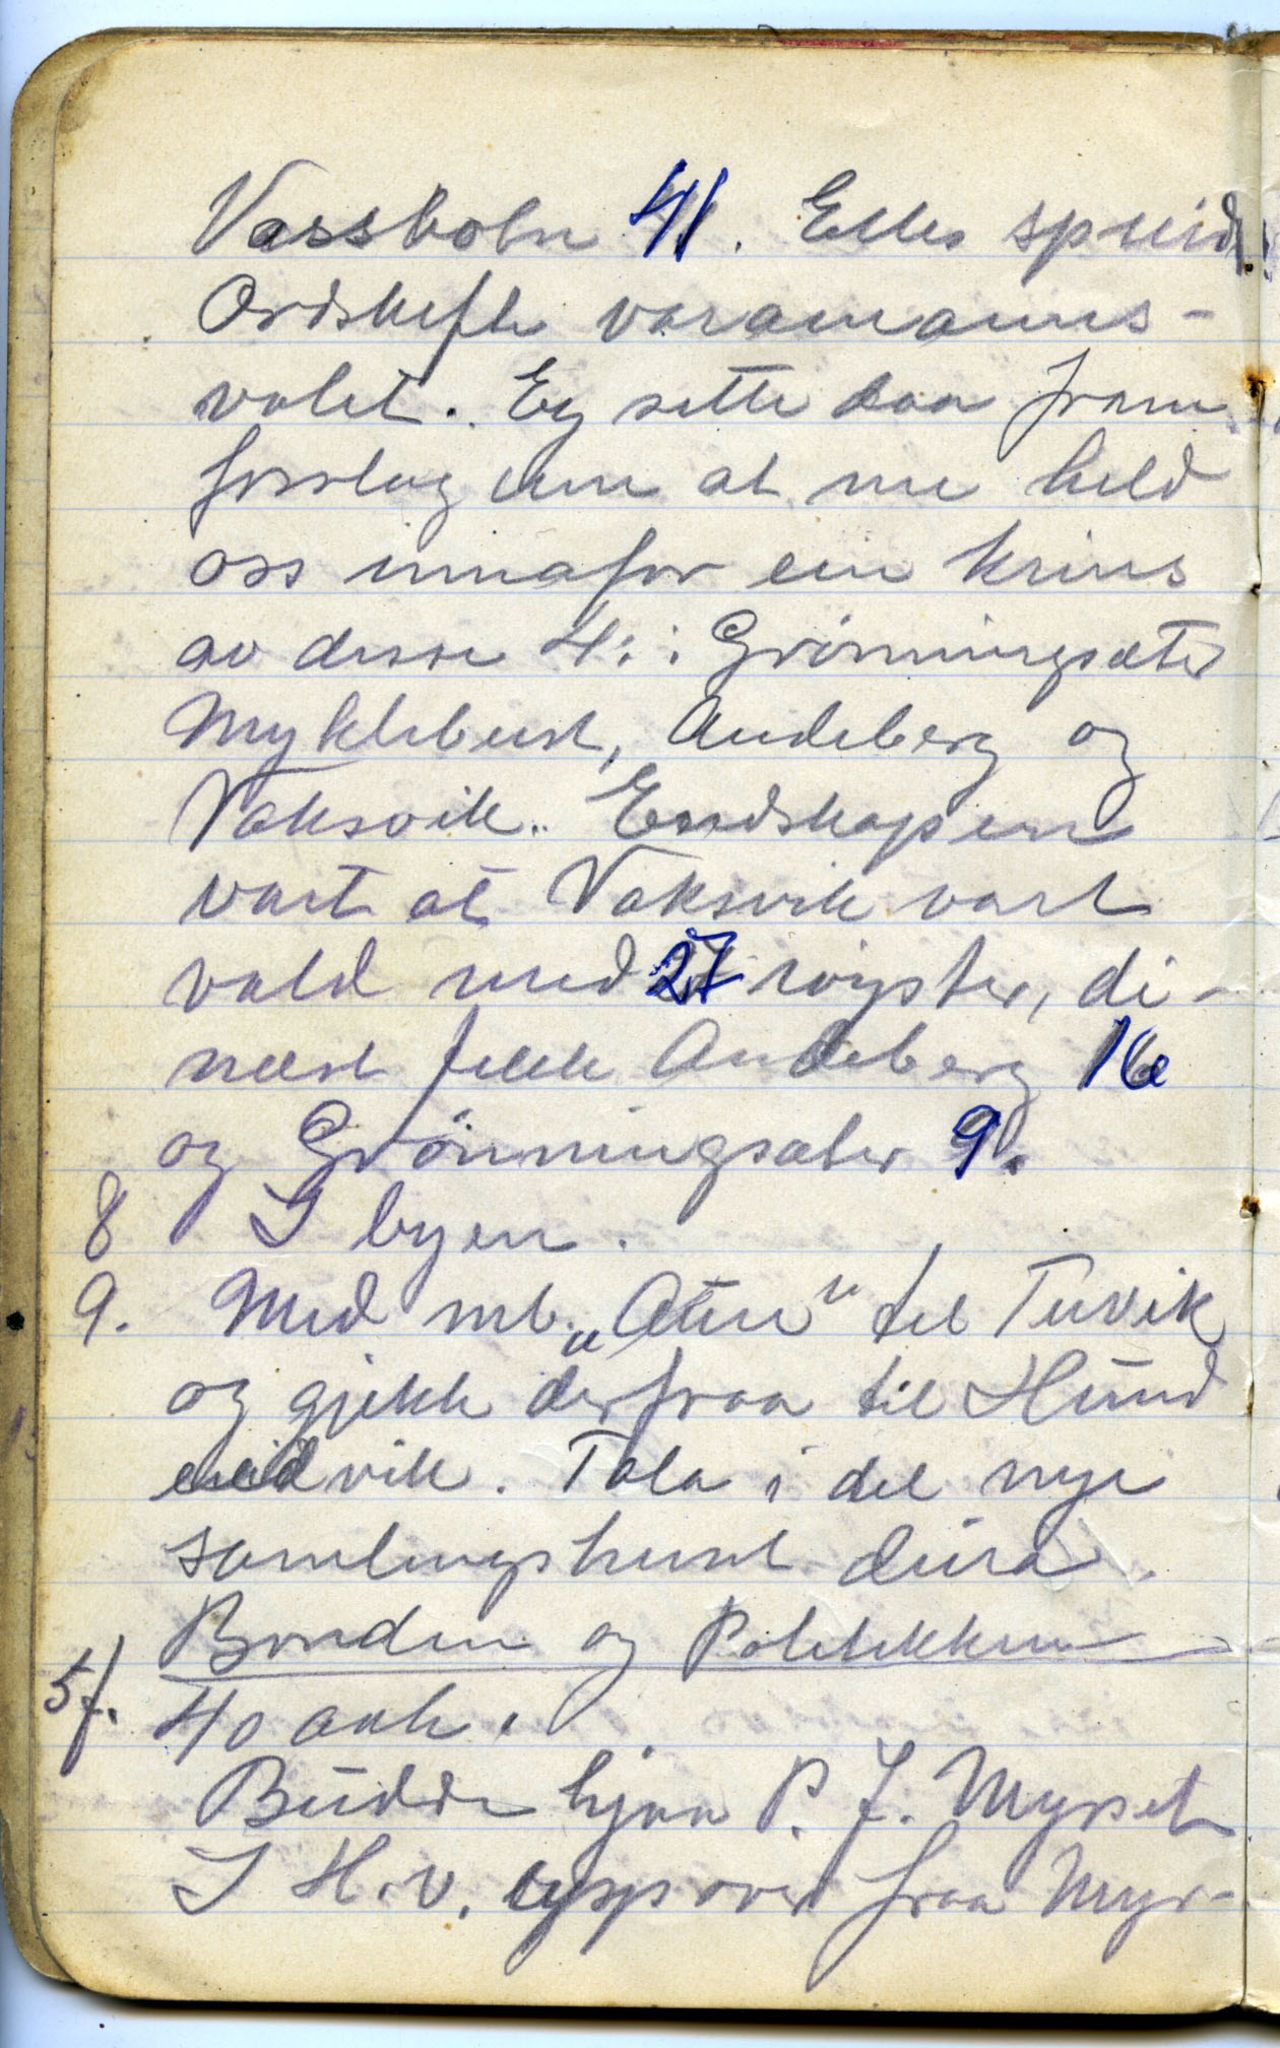 Vassbotn 41. Elles spreidd.
Ordskifte varamanns-
valet. Eg sette daa fram
forslag um at me held
oss innafor ein krins
av desse 4: Grönningsæter
Myklebust, Andeberg og
Vaksvik. Endskapen
vart at Vaksvik vart
vald med 27 röyster, di-
næst fekk Andeberg 16
og Grönningsæter 9.
8 I byen.
9. Med mb. „Atun" til Tuvik
og gjekk derfraa til Hund
eidvik. Tala i det nye
samlingshuset deira.
Bonden og Politikken
5f. 40 aah.
Budde hjaa P. J. Myrset
I H.v. uppover fraa Myr-